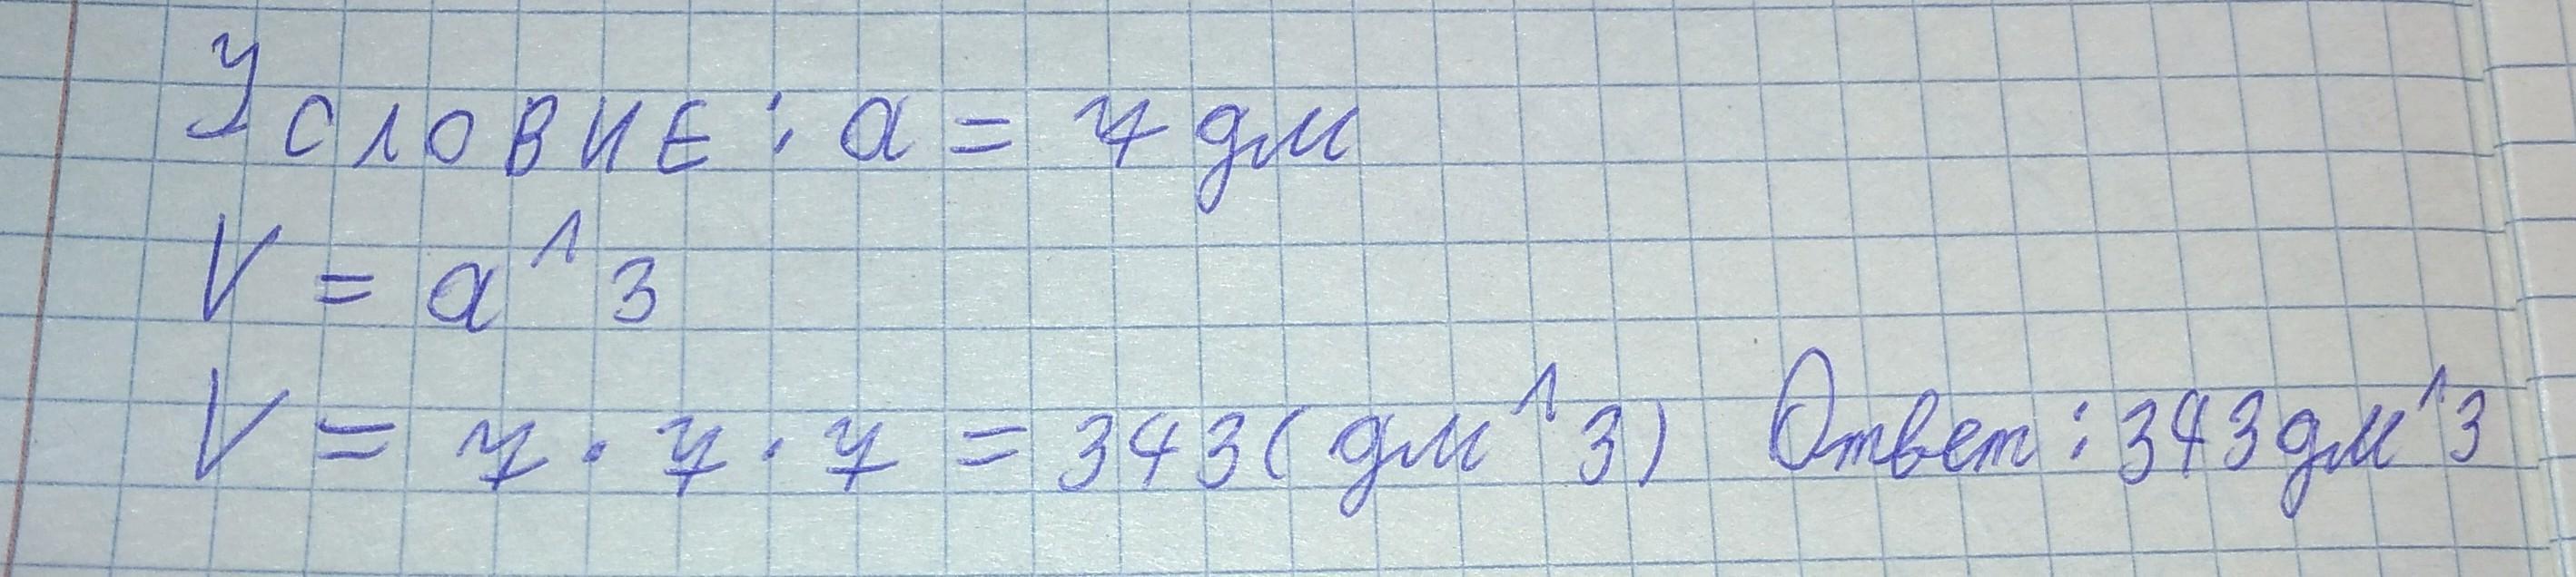 Условие: a = 7 дм
V = a^3
V = 7 · 7 · 7 = 343 (дм^3) Ответ: 343 дм^3